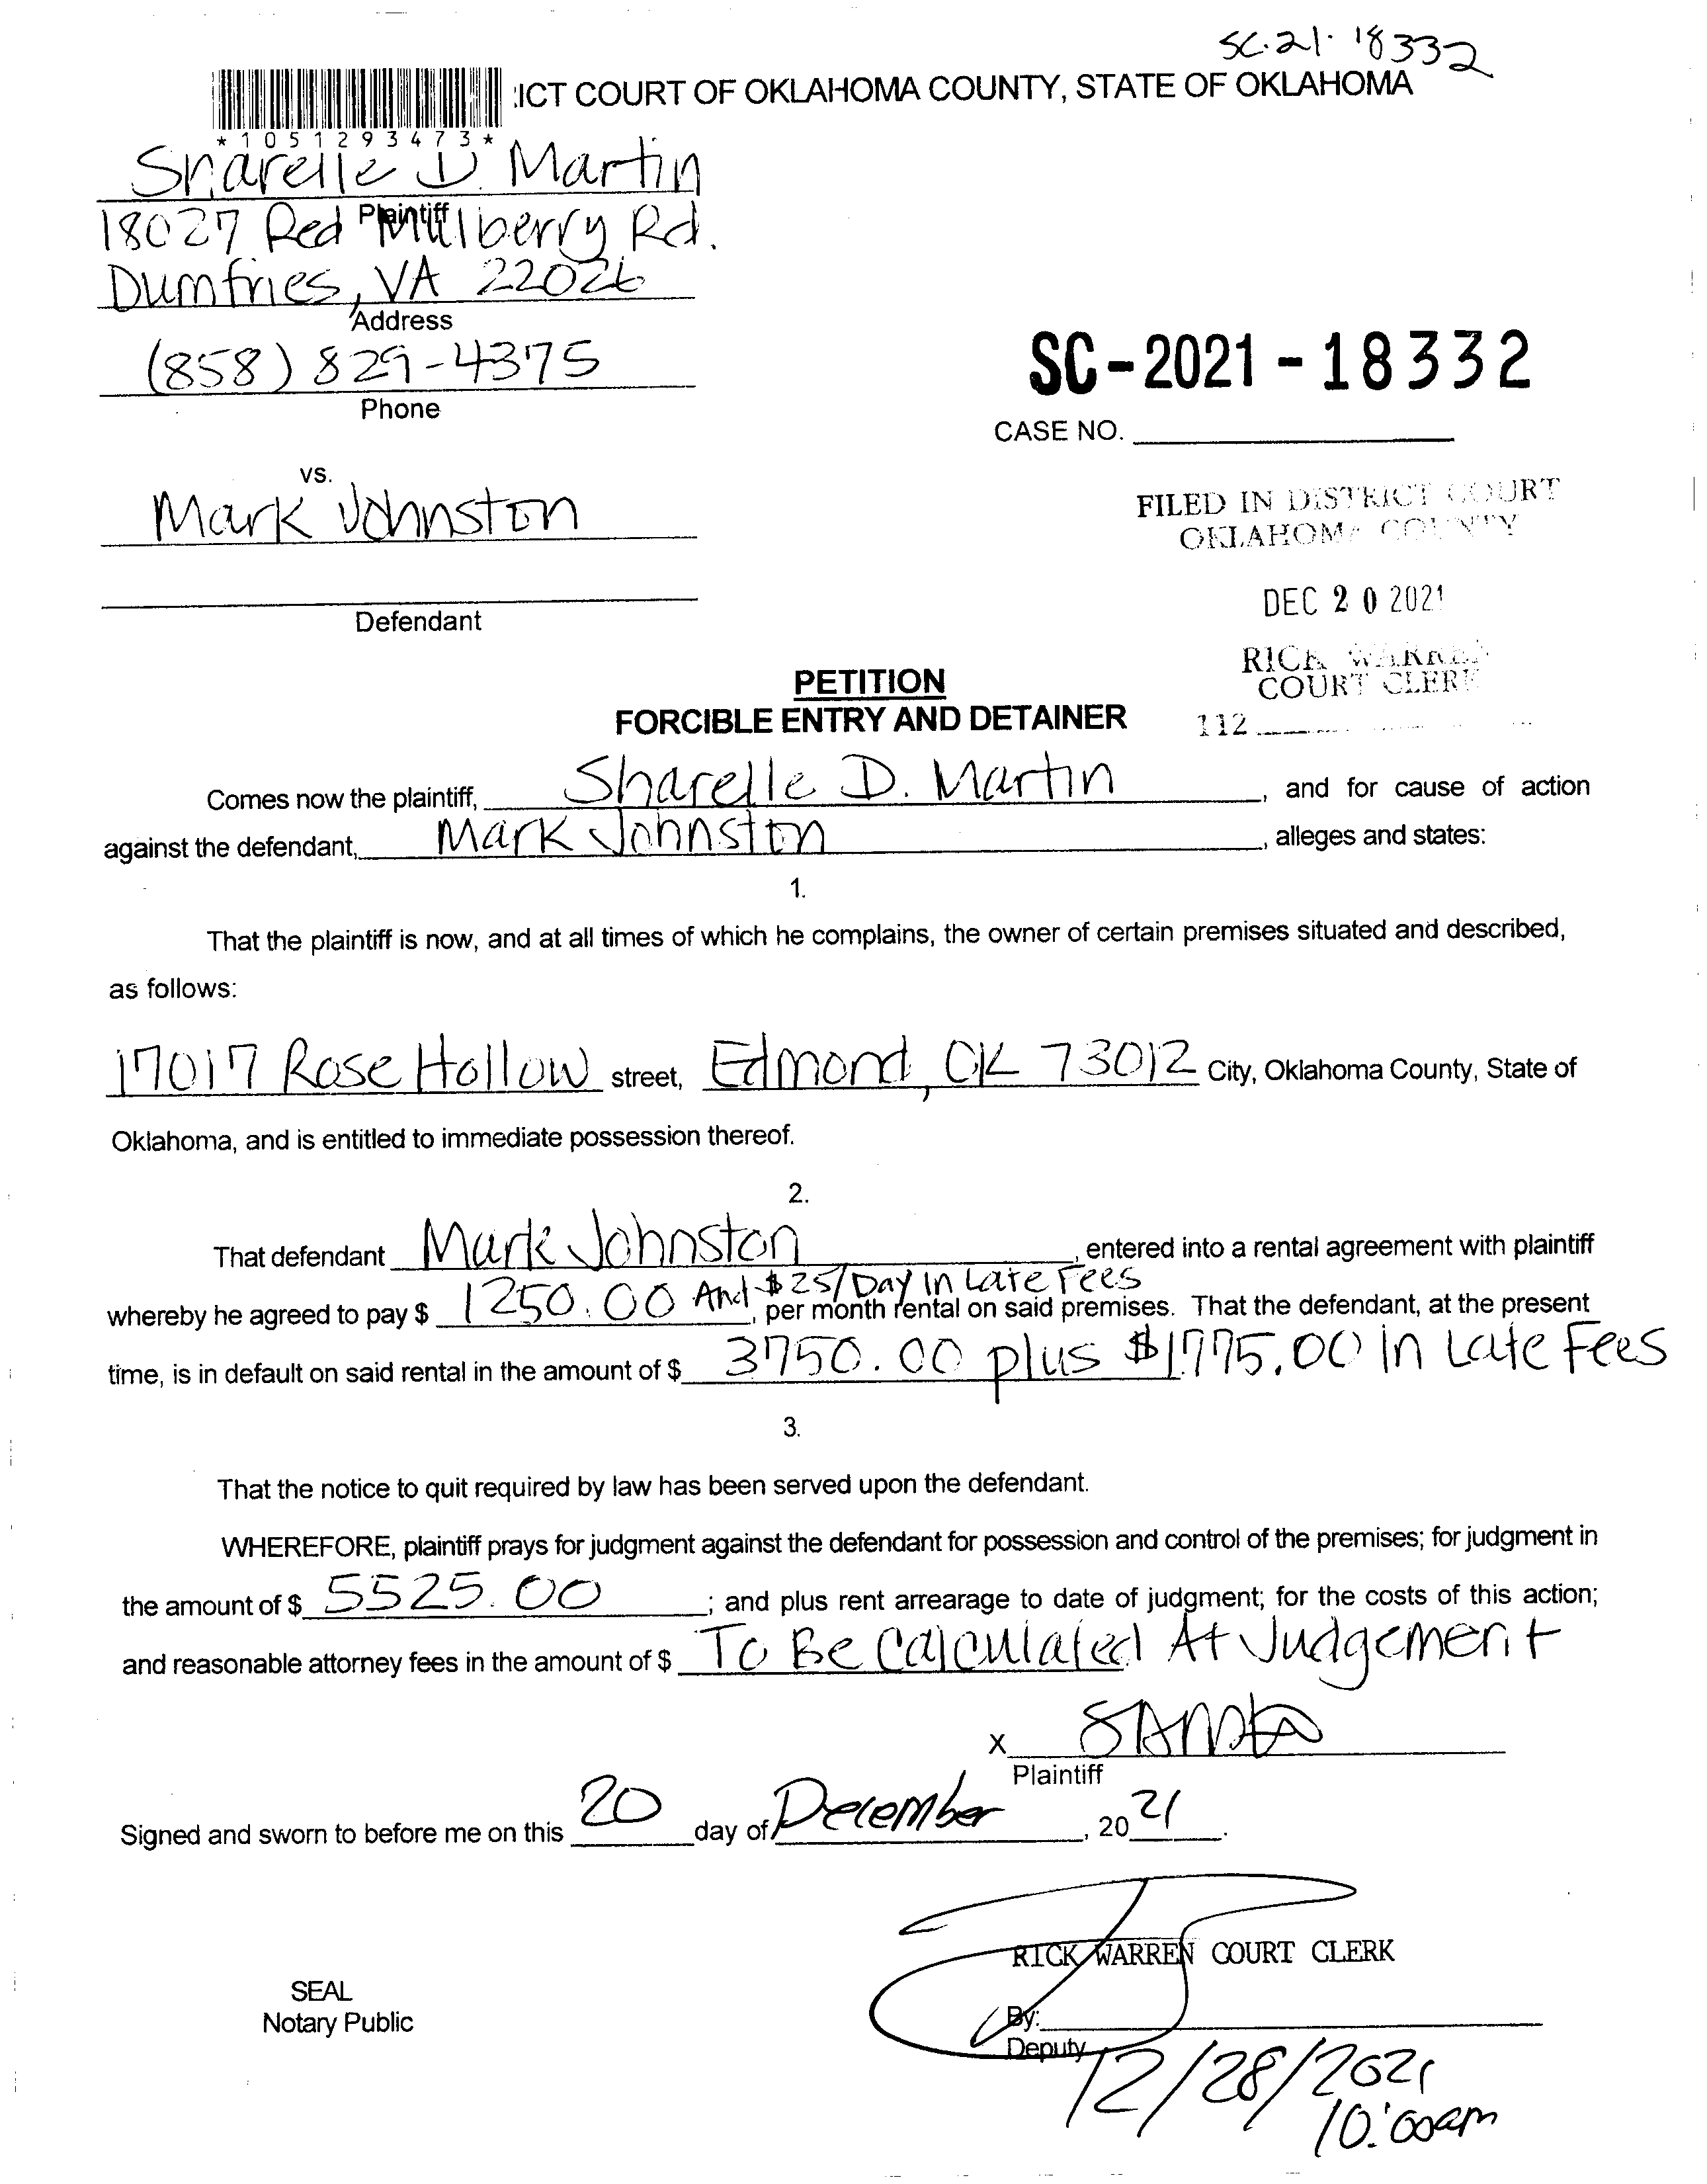 SC-21-18332
ICT COURT OF OKLAHOMA COUNTY, STATE OF OKLAHOMA
*1051293473*
Sharelle D. Martin
Plaintiff
18027 Red Mulberry Rd.
Dumfries, VA 22026
Address
(858) 829-4375
Phone
SC-2021-18332
CASE NO.
vs.
Mark Johnston
Defendant
FILED IN DISTRICT COURT
OKLAHOMA COUNTY
DEC 20 2021
RICK WARREN
COURT CLERK
112
PETITION
FORCIBLE ENTRY AND DETAINER
Comes now the plaintiff, Sharelle D. Martin, and for cause of action
against the defendant, Mark Johnston, alleges and states:
1.
That the plaintiff is now, and at all times of which he complains, the owner of certain premises situated and described,
as follows:
17017 Rose Hollow street, Edmond, OK 73012 City, Oklahoma County, State of
Oklahoma, and is entitled to immediate possession thereof.
2.
That defendant Mark Johnston, entered into a rental agreement with plaintiff
whereby he agreed to pay $ 1250.00 And $25/Day in Late Fees, per month rental on said premises. That the defendant, at the present
time, is in default on said rental in the amount of $ 3750.00 plus $1775.00 in Late Fees
3.
That the notice to quit required by law has been served upon the defendant.
WHEREFORE, plaintiff prays for judgment against the defendant for possession and control of the premises; for judgment in
the amount of $ 5525.00; and plus rent arrearage to date of judgment; for the costs of this action;
and reasonable attorney fees in the amount of $ To Be Calculated At Judgement
X
Plaintiff
Signed and sworn to before me on this 20 day of December, 2021.
RICK WARREN COURT CLERK
SEAL
Notary Public
By:
Deputy
12/28/2021
10:00am